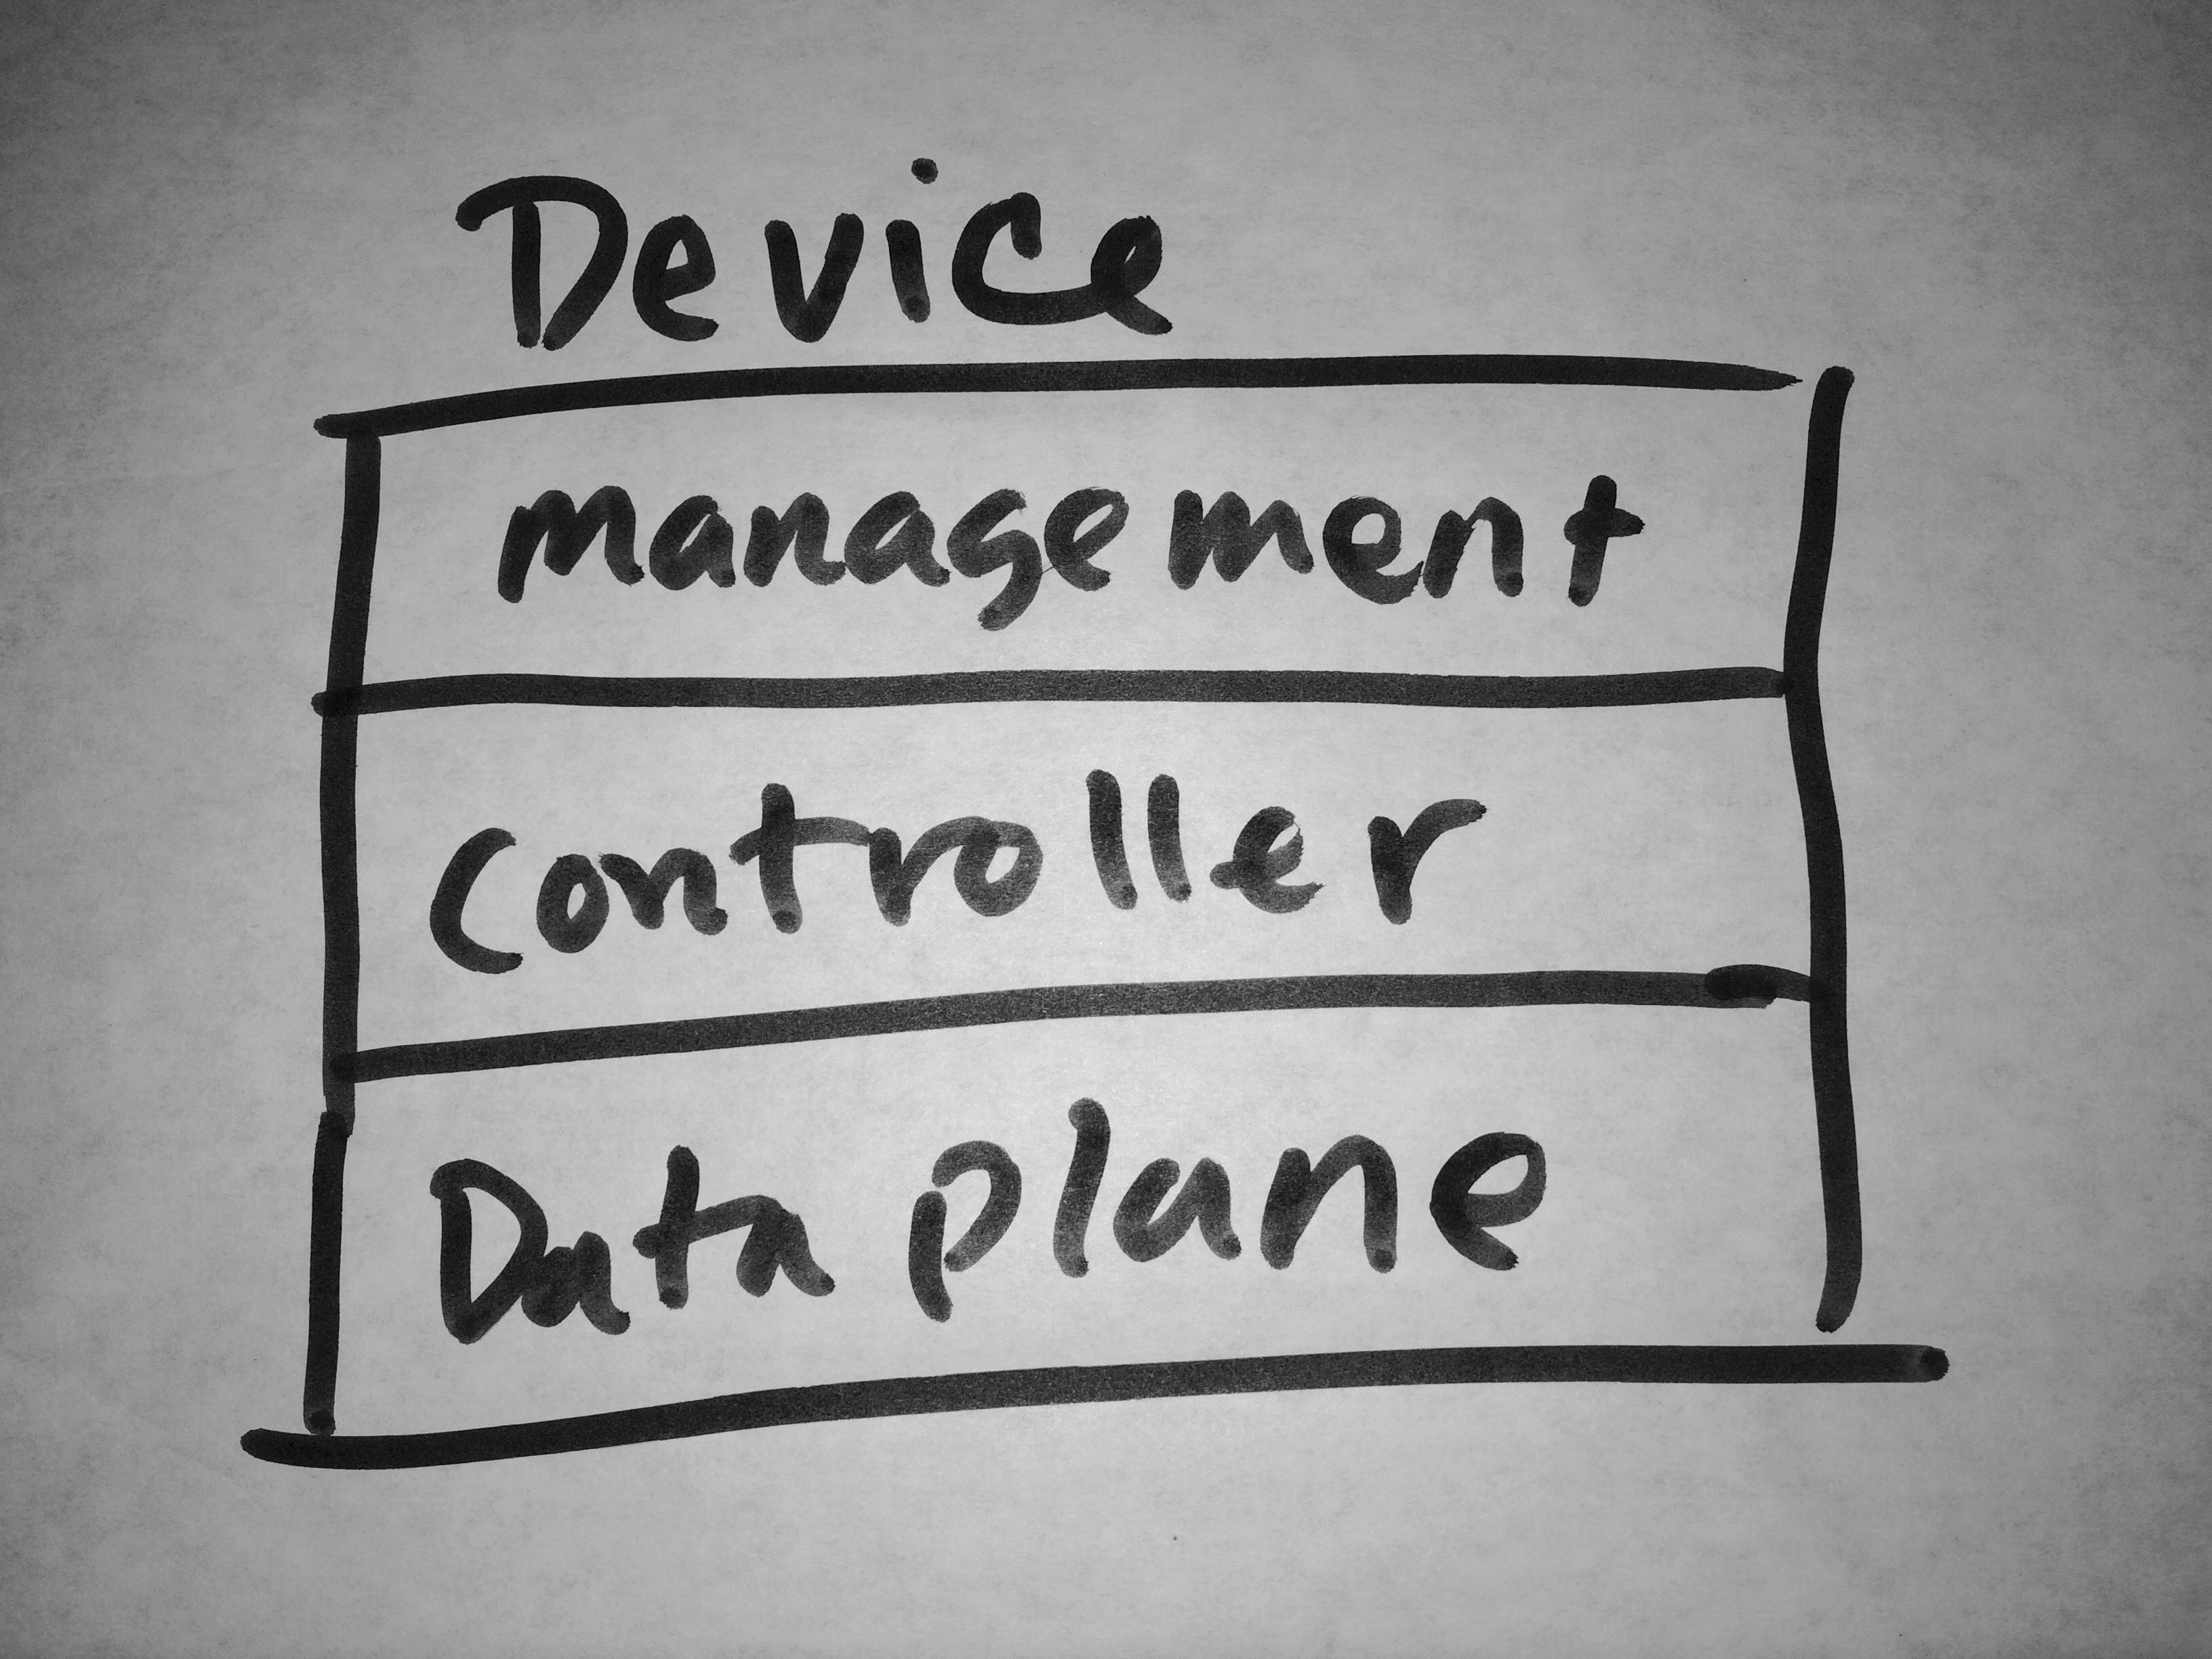 Device
management
Controller
Data plane